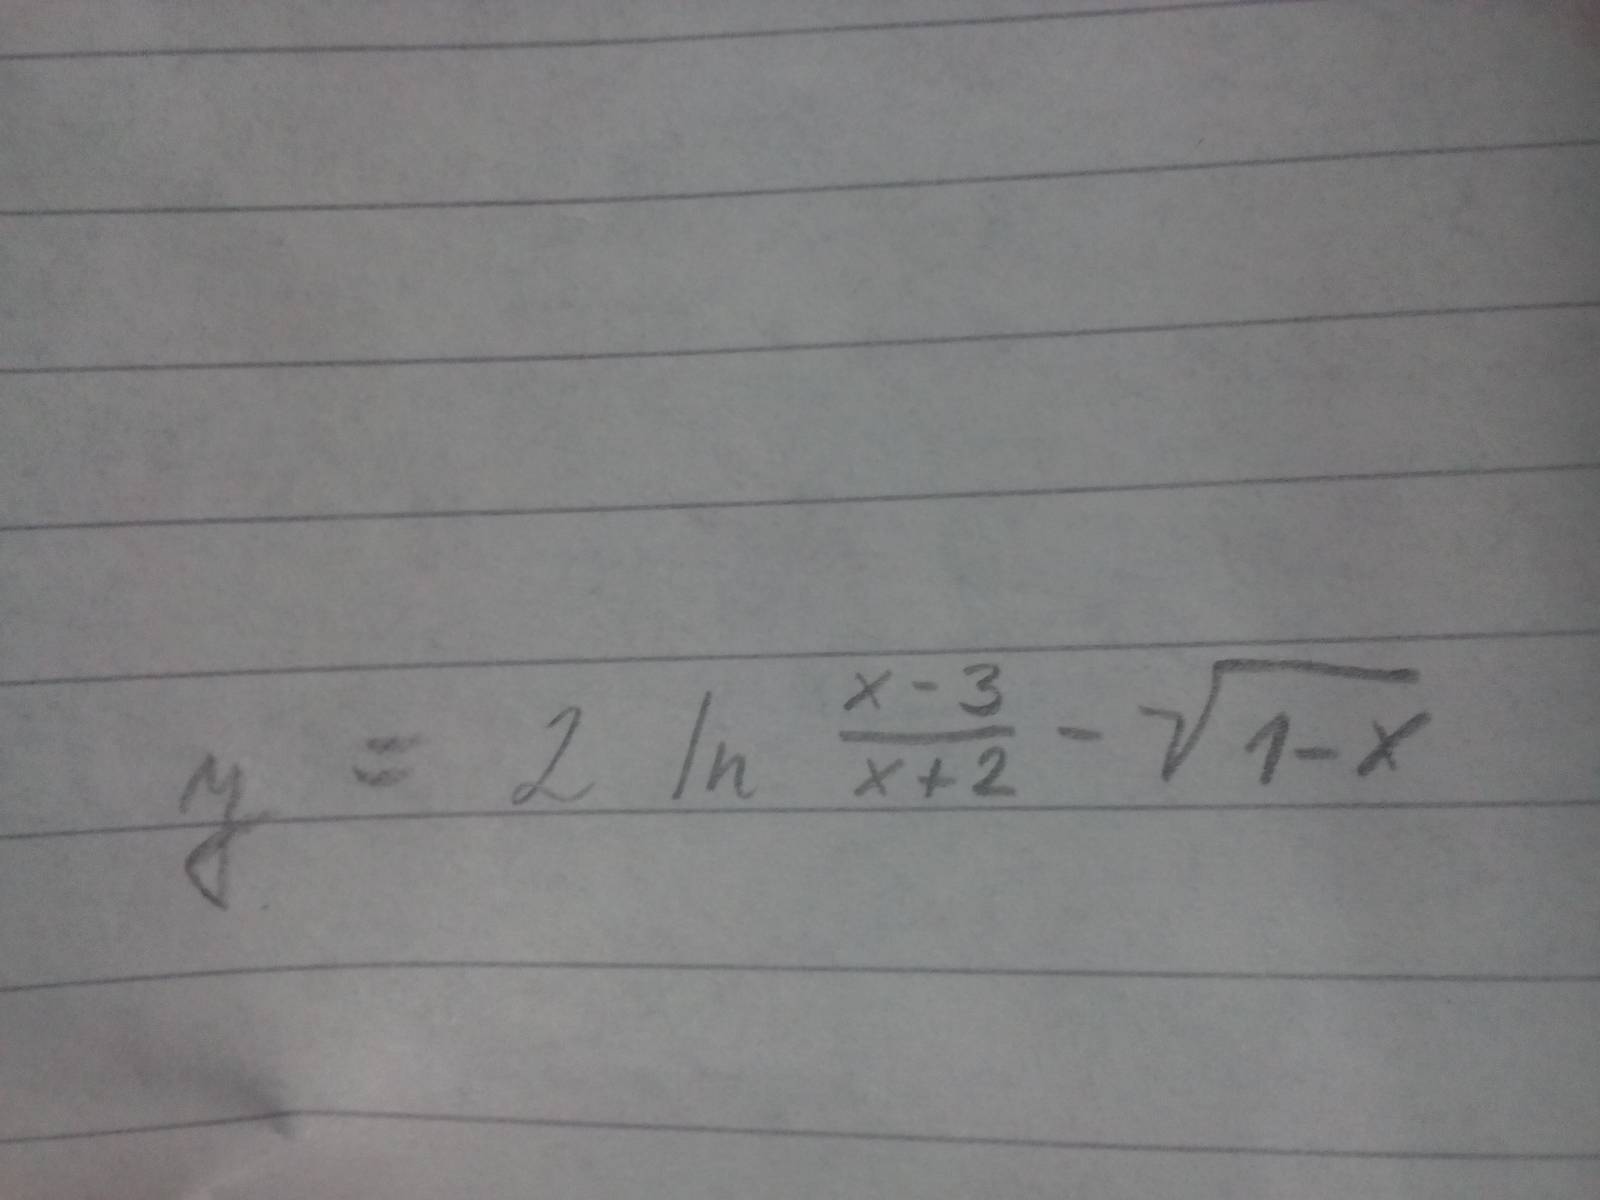 y = 2 ln \frac{x-3}{x+2} - \sqrt{1-x}